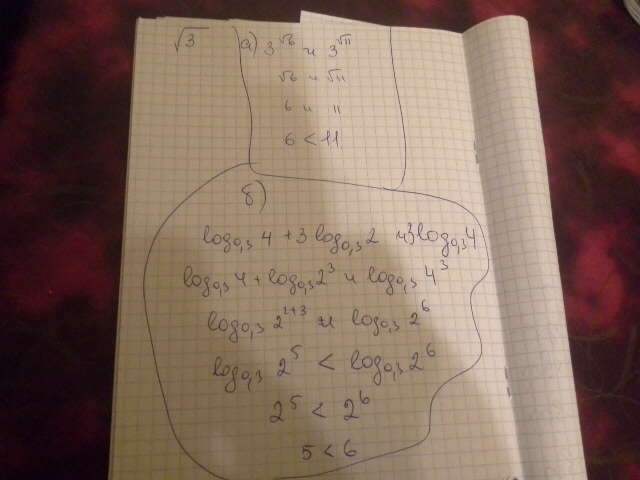 √3 а) 3^√6 и 3^√11
√6 и √11
6 и 11
6 < 11
б)
log₀,₃ 4 + 3 log₀,₃ 2 и 3 log₀,₃ 4
log₀,₃ 4 + log₀,₃ 2³ и log₀,₃ 4³
log₀,₃ 2²⁺³ и log₀,₃ 2⁶
log₀,₃ 2⁵ < log₀,₃ 2⁶
2⁵ < 2⁶
5 < 6